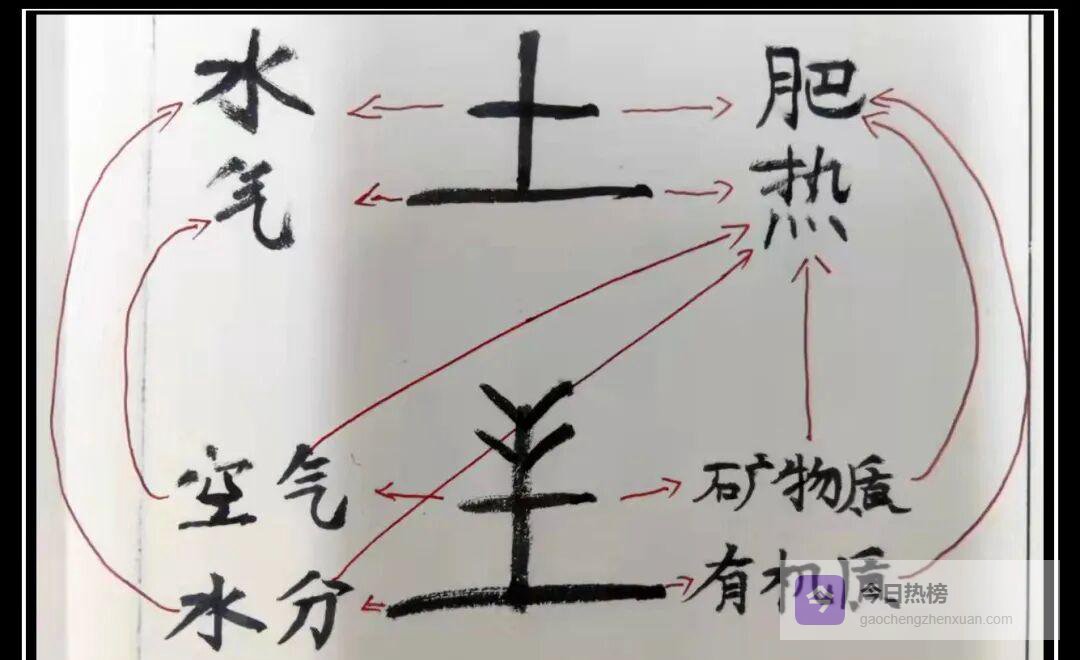 水 土 肥
气 热
空气 矿物质
水分 有机质
今 今日热榜
gaochengzhenxuan.com